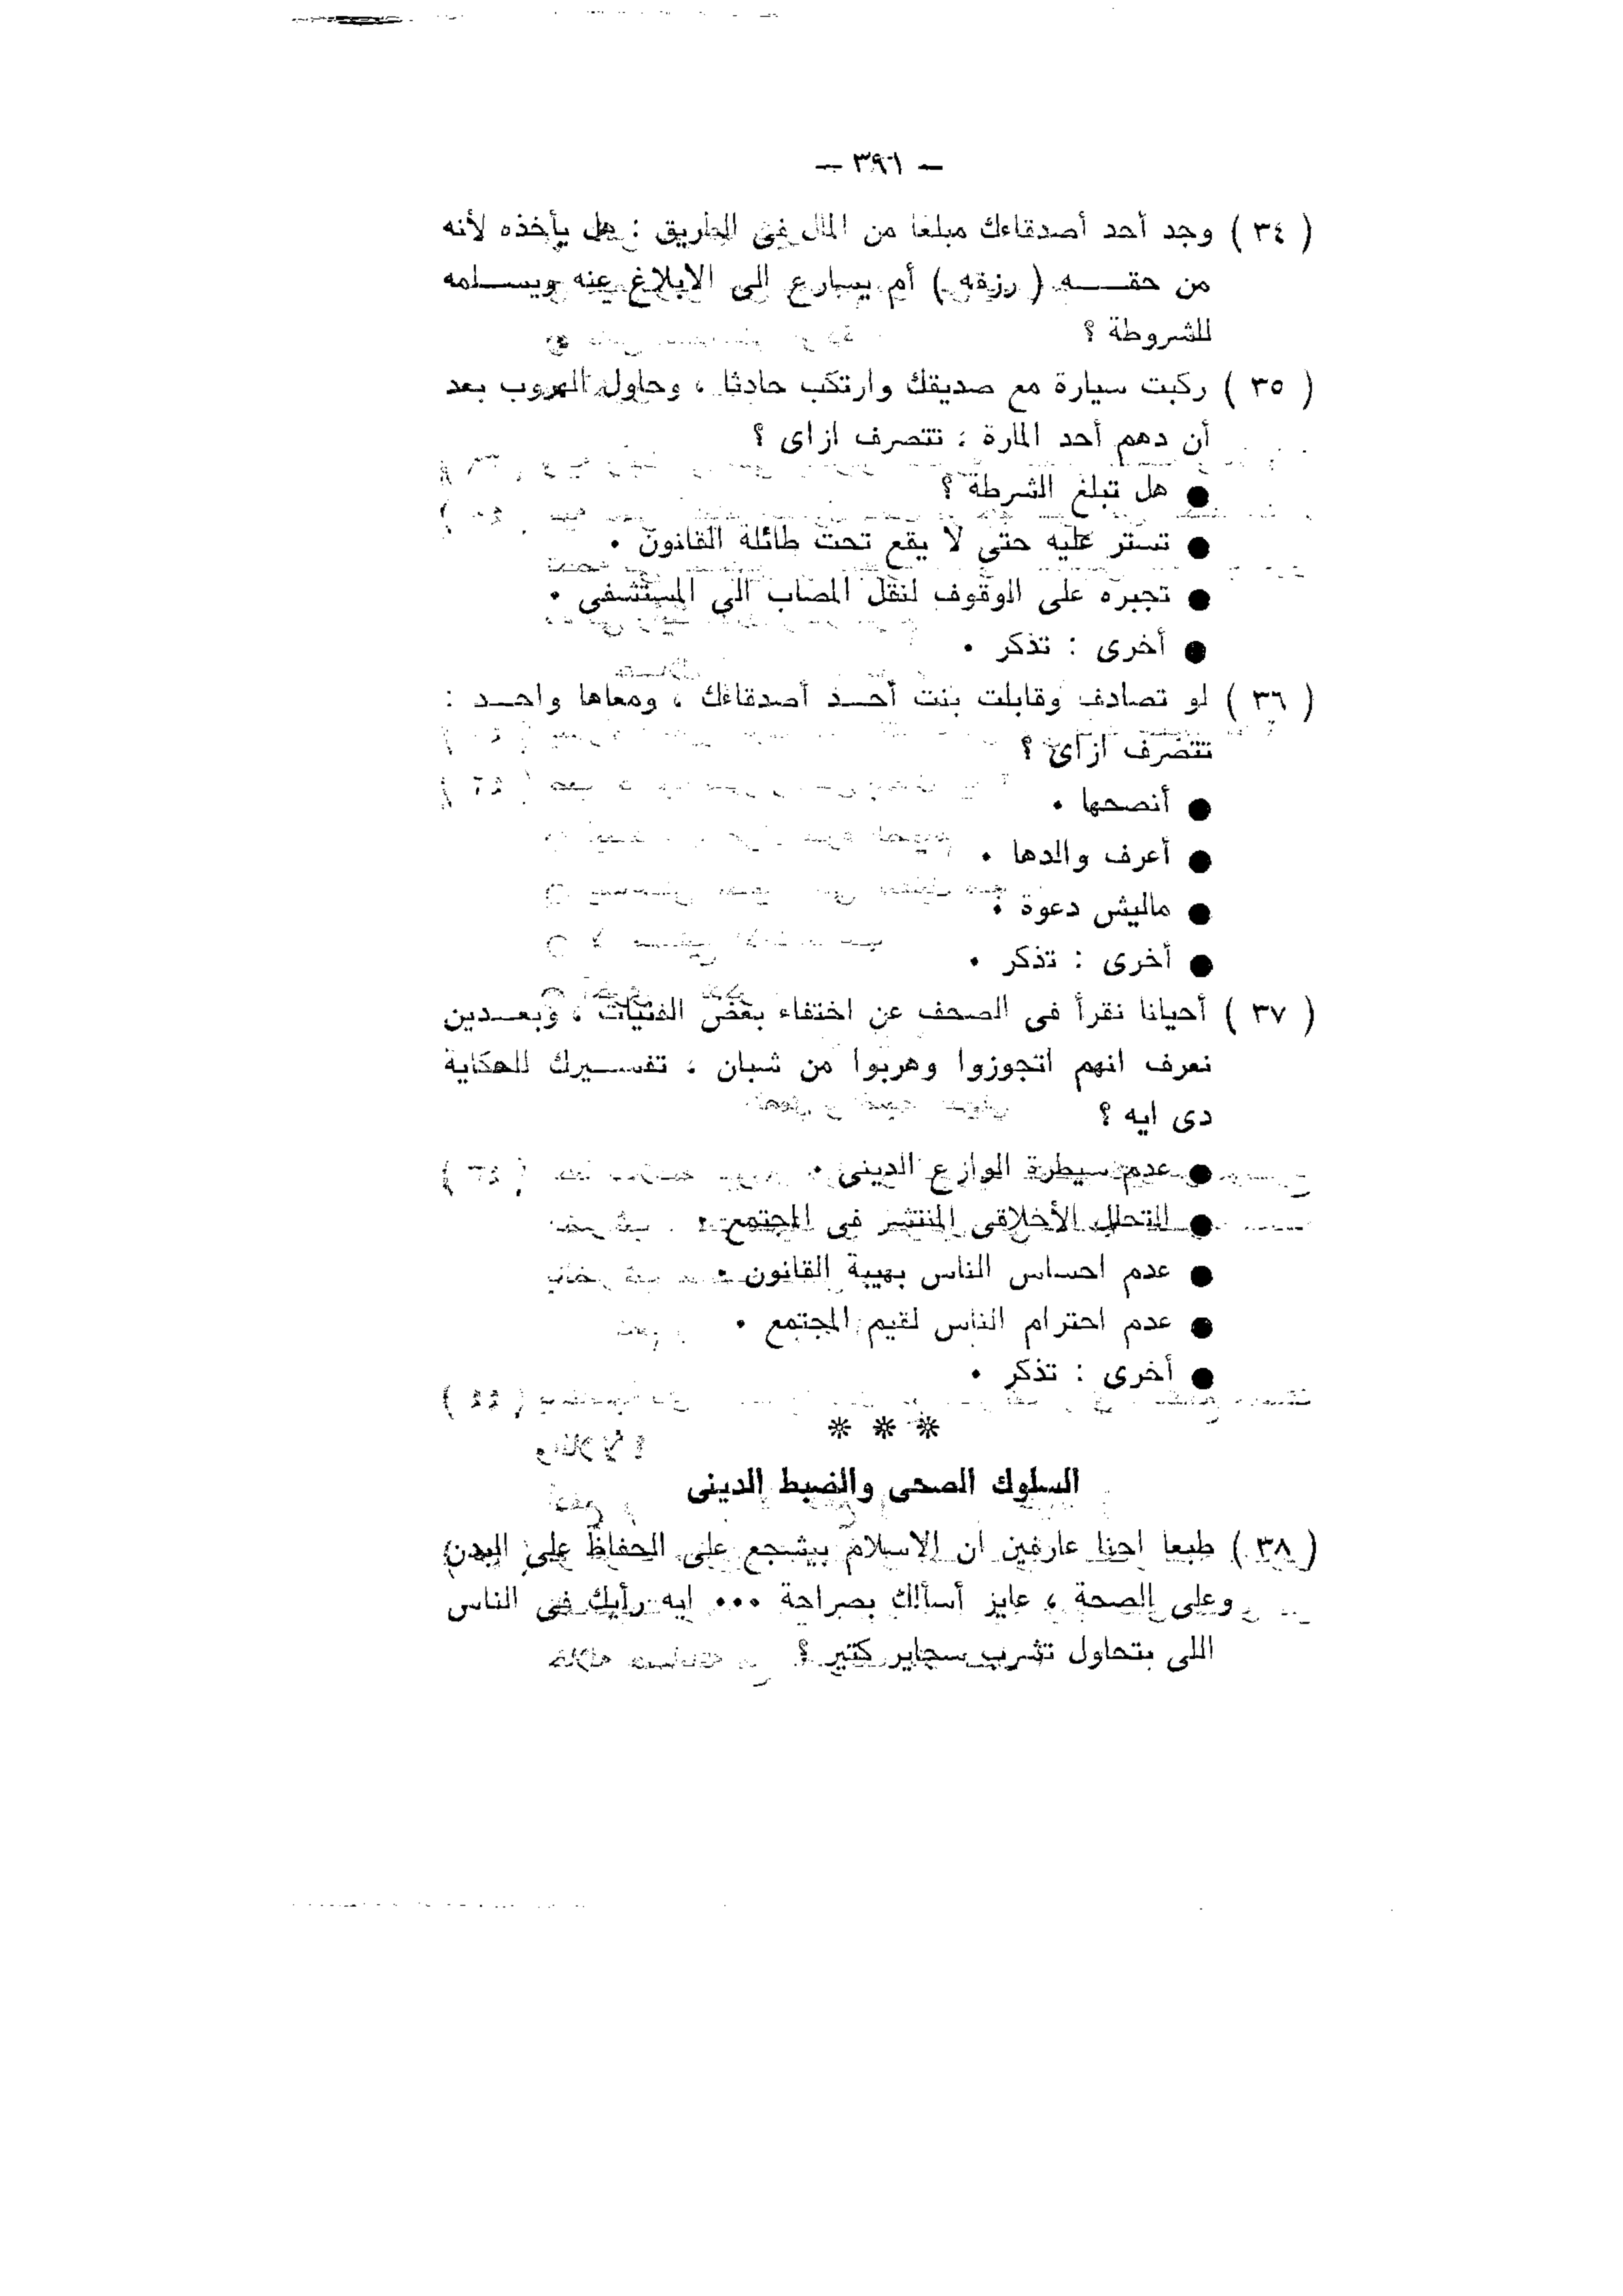 — ٣٩٦ —
( ٣٤ ) وجد أحد أصدقاءك مبلغا من المال فى الطريق : هل يأخذه لأنه
من حقـــه ( رزقه ) أم يسارع الى الابلاغ عنه ويســلمه
للشروطة ؟
( ٣٥ ) ركبت سيارة مع صديقك وارتكب حادثا ، وحاول الهروب بعد
أن دهم أحد المارة : تتصرف ازاى ؟
● هل تبلغ الشرطة ؟
● تستر عليه حتى لا يقع تحت طائلة القانون .
● تجبره على الوقوف لنقل المصاب الى المستشفى .
● أخرى : تذكر .
( ٣٦ ) لو تصادف وقابلت بنت أحــد أصدقاءك ، ومعاها واحــد :
تتصرف ازاى ؟
● أنصحها .
● أعرف والدها .
● ماليش دعوة .
● أخرى : تذكر .
( ٣٧ ) أحيانا نقرأ فى الصحف عن اختفاء بعض الفتيات ، وبعــدين
نعرف انهم اتجوزوا وهربوا من شبان ، تفســيرك للحكاية
دى ايه ؟
● عدم سيطرة الوازع الدينى .
● التحلل الأخلاقى المنتشر فى المجتمع .
● عدم احساس الناس بهيبة القانون .
● عدم احترام الناس لقيم المجتمع .
● أخرى : تذكر .
* * *
السلوك الصحى والضبط الدينى
( ٣٨ ) طبعا احنا عارفين ان الاسلام بيشجع على الحفاظ على البدن
وعلى الصحة ، عايز أسألك بصراحة ... ايه رأيك فى الناس
اللى بتحاول تشرب سجاير كتير ؟